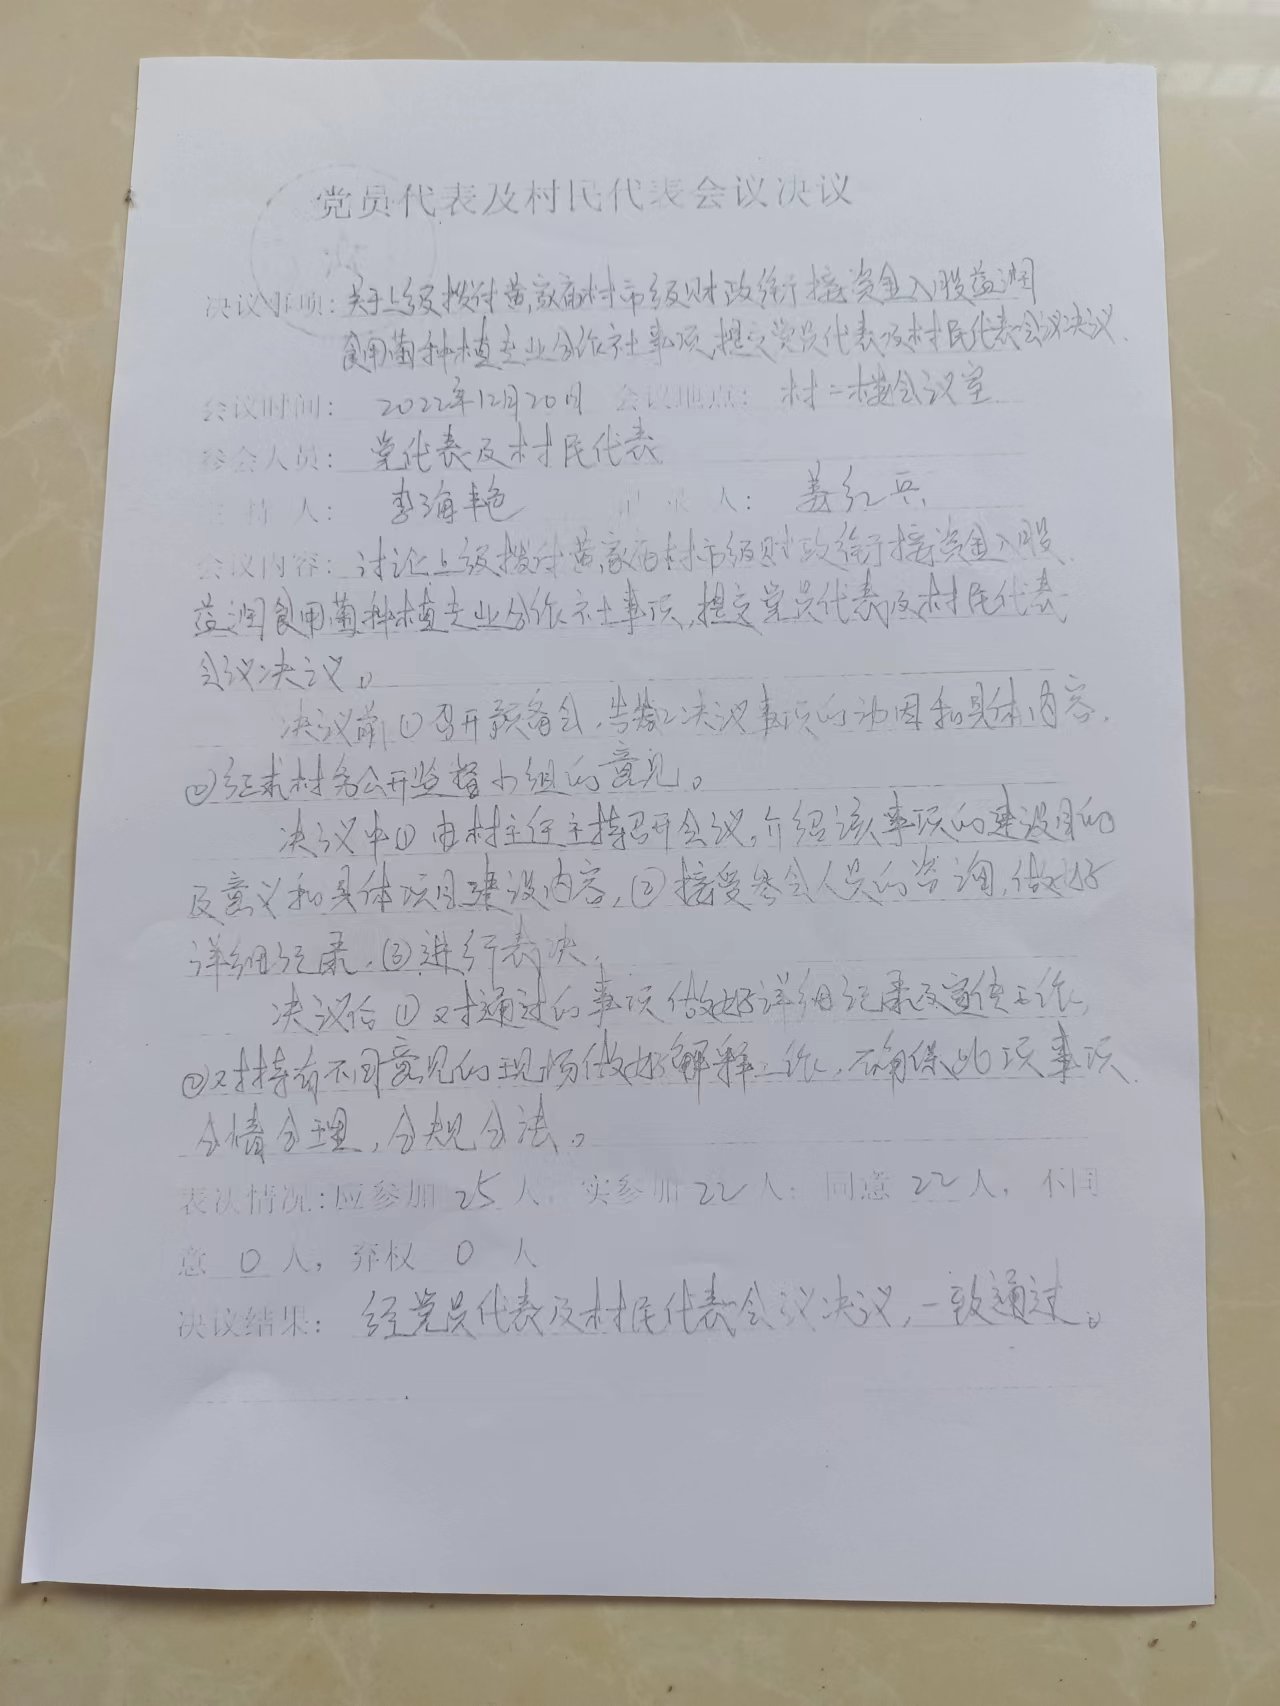 党员代表及村民代表会议决议
决议事项：关于上级拨付黄家庙村市级财政衔接资金入股益润
食用菌种植专业合作社事项，提交党员代表及村民代表会议决议。
会议时间： 2022年12月20日 会议地点： 村二楼会议室
参会人员： 党代表及村民代表
主持人： 李海艳 记录人： 姜红兵
会议内容：讨论上级拨付黄家庙村市级财政衔接资金入股
益润食用菌种植专业合作社事项，提交党员代表及村民代表
会议决议。
决议前①召开预备会，告知决议事项的动因和具体内容，
②征求村务公开监督小组的意见。
决议中①由村主任主持召开会议，介绍该事项的建设目的
及意义和具体项目建设内容，②接受参会人员的咨询，做好
详细记录，③进行表决。
决议后①对通过的事项做好详细记录及宣传工作，
②对持有不同意见的现场做好解释工作，确保此项事项
合情合理，合规合法。
表决情况：应参加 25 人，实参加 22 人；同意 22 人，不同
意 0 人，弃权 0 人
决议结果： 经党员代表及村民代表会议决议，一致通过。